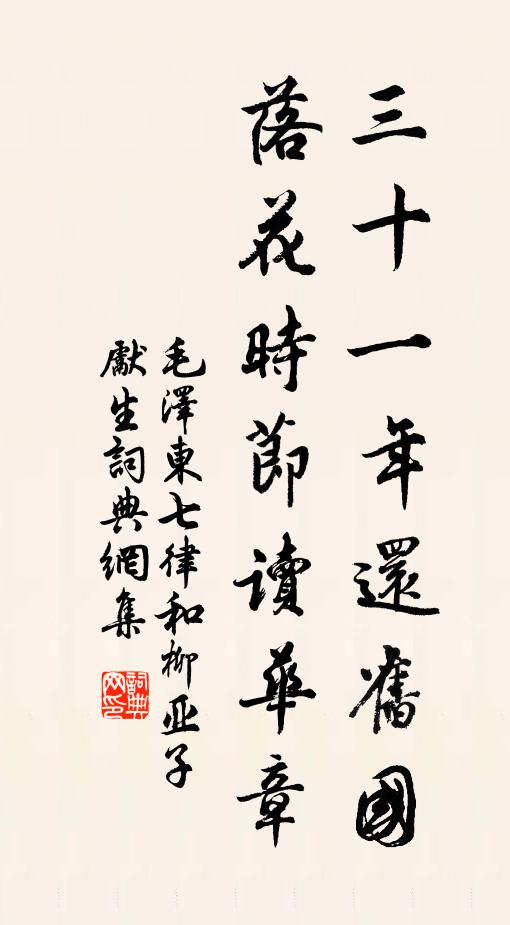 三十一年還舊國
落花時節讀華章
毛澤東七律和柳亚子
獻生詞典網集
詞典网印